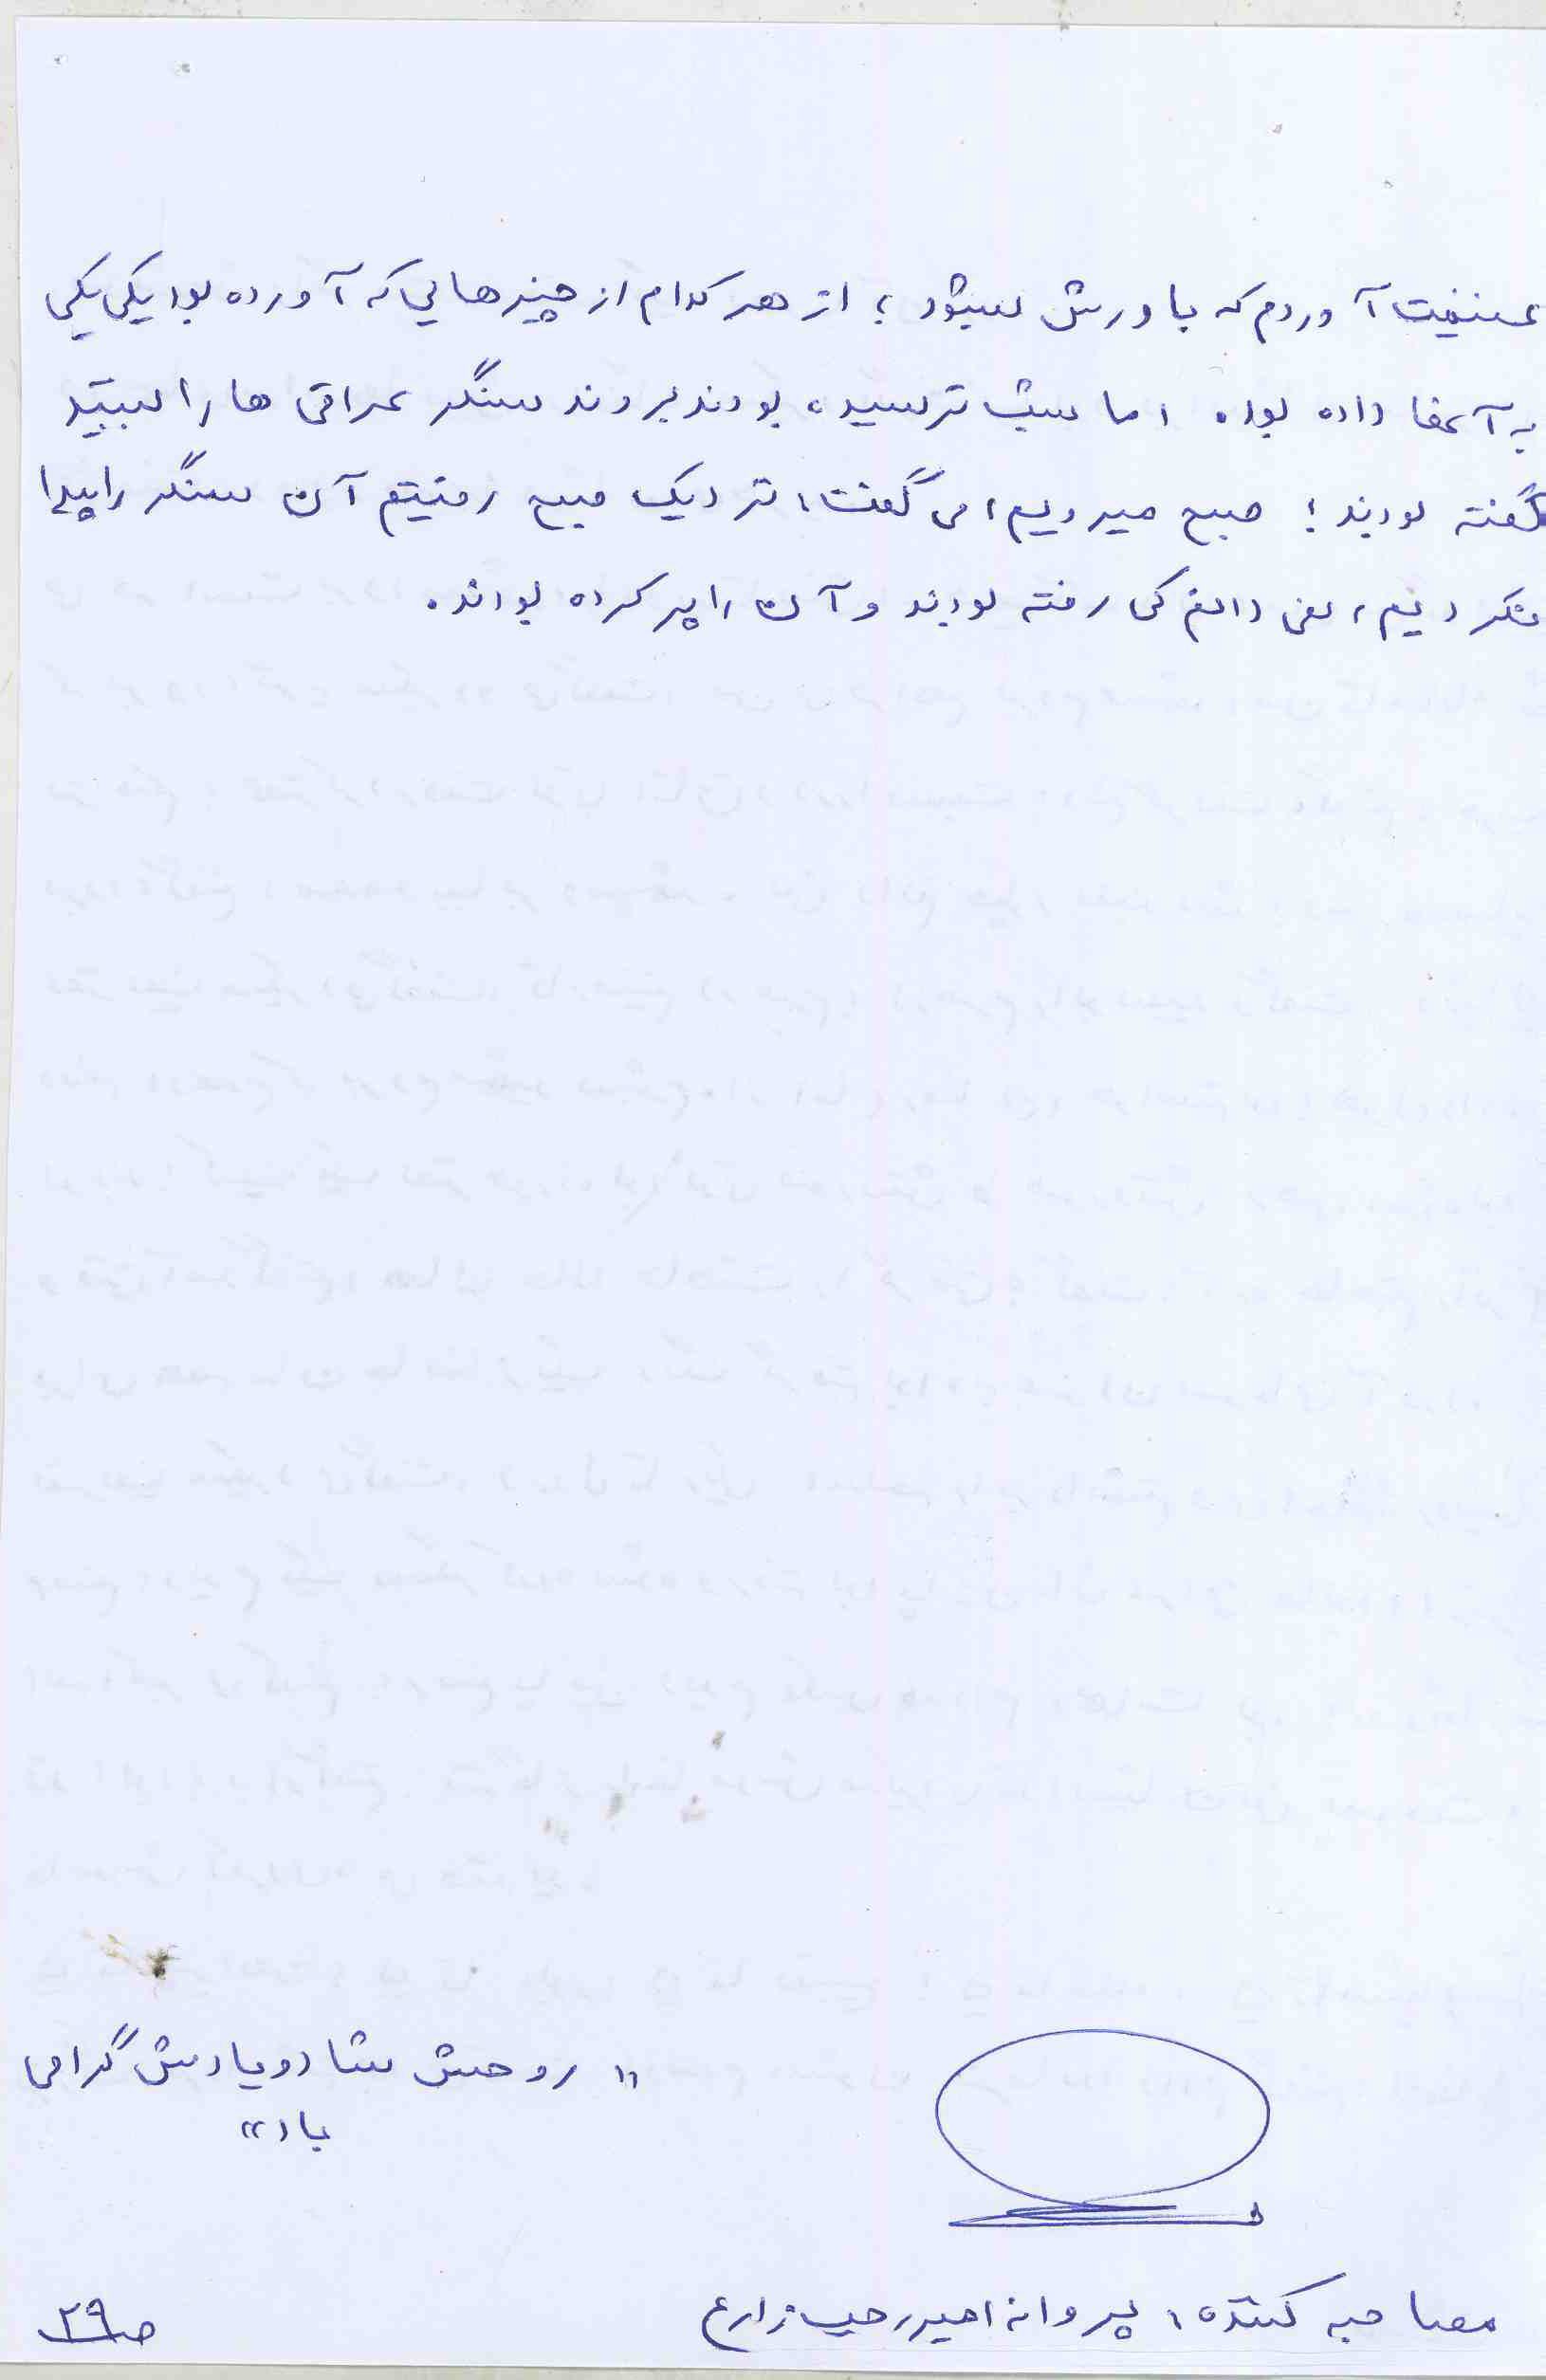 غنیمت آوردم که باورش نمیشود؛ از هر کدام از چیزهایی که آورده بود یکی یکی
به آنها داده بود. اما شب ترسیده بودند بروند سنگر عراقی ها را ببینند
گفته بودند؛ صبح میرویم، می گفت، نزدیک صبح رفتیم آن سنگر را پیدا
نکردیم، نمی دانم کی رفته بودند و آن را پر کرده بودند.
"روحش شاد و یادش گرامی
باد"
مصاحبه کننده، پروانه امیر زارع
ص۲۹